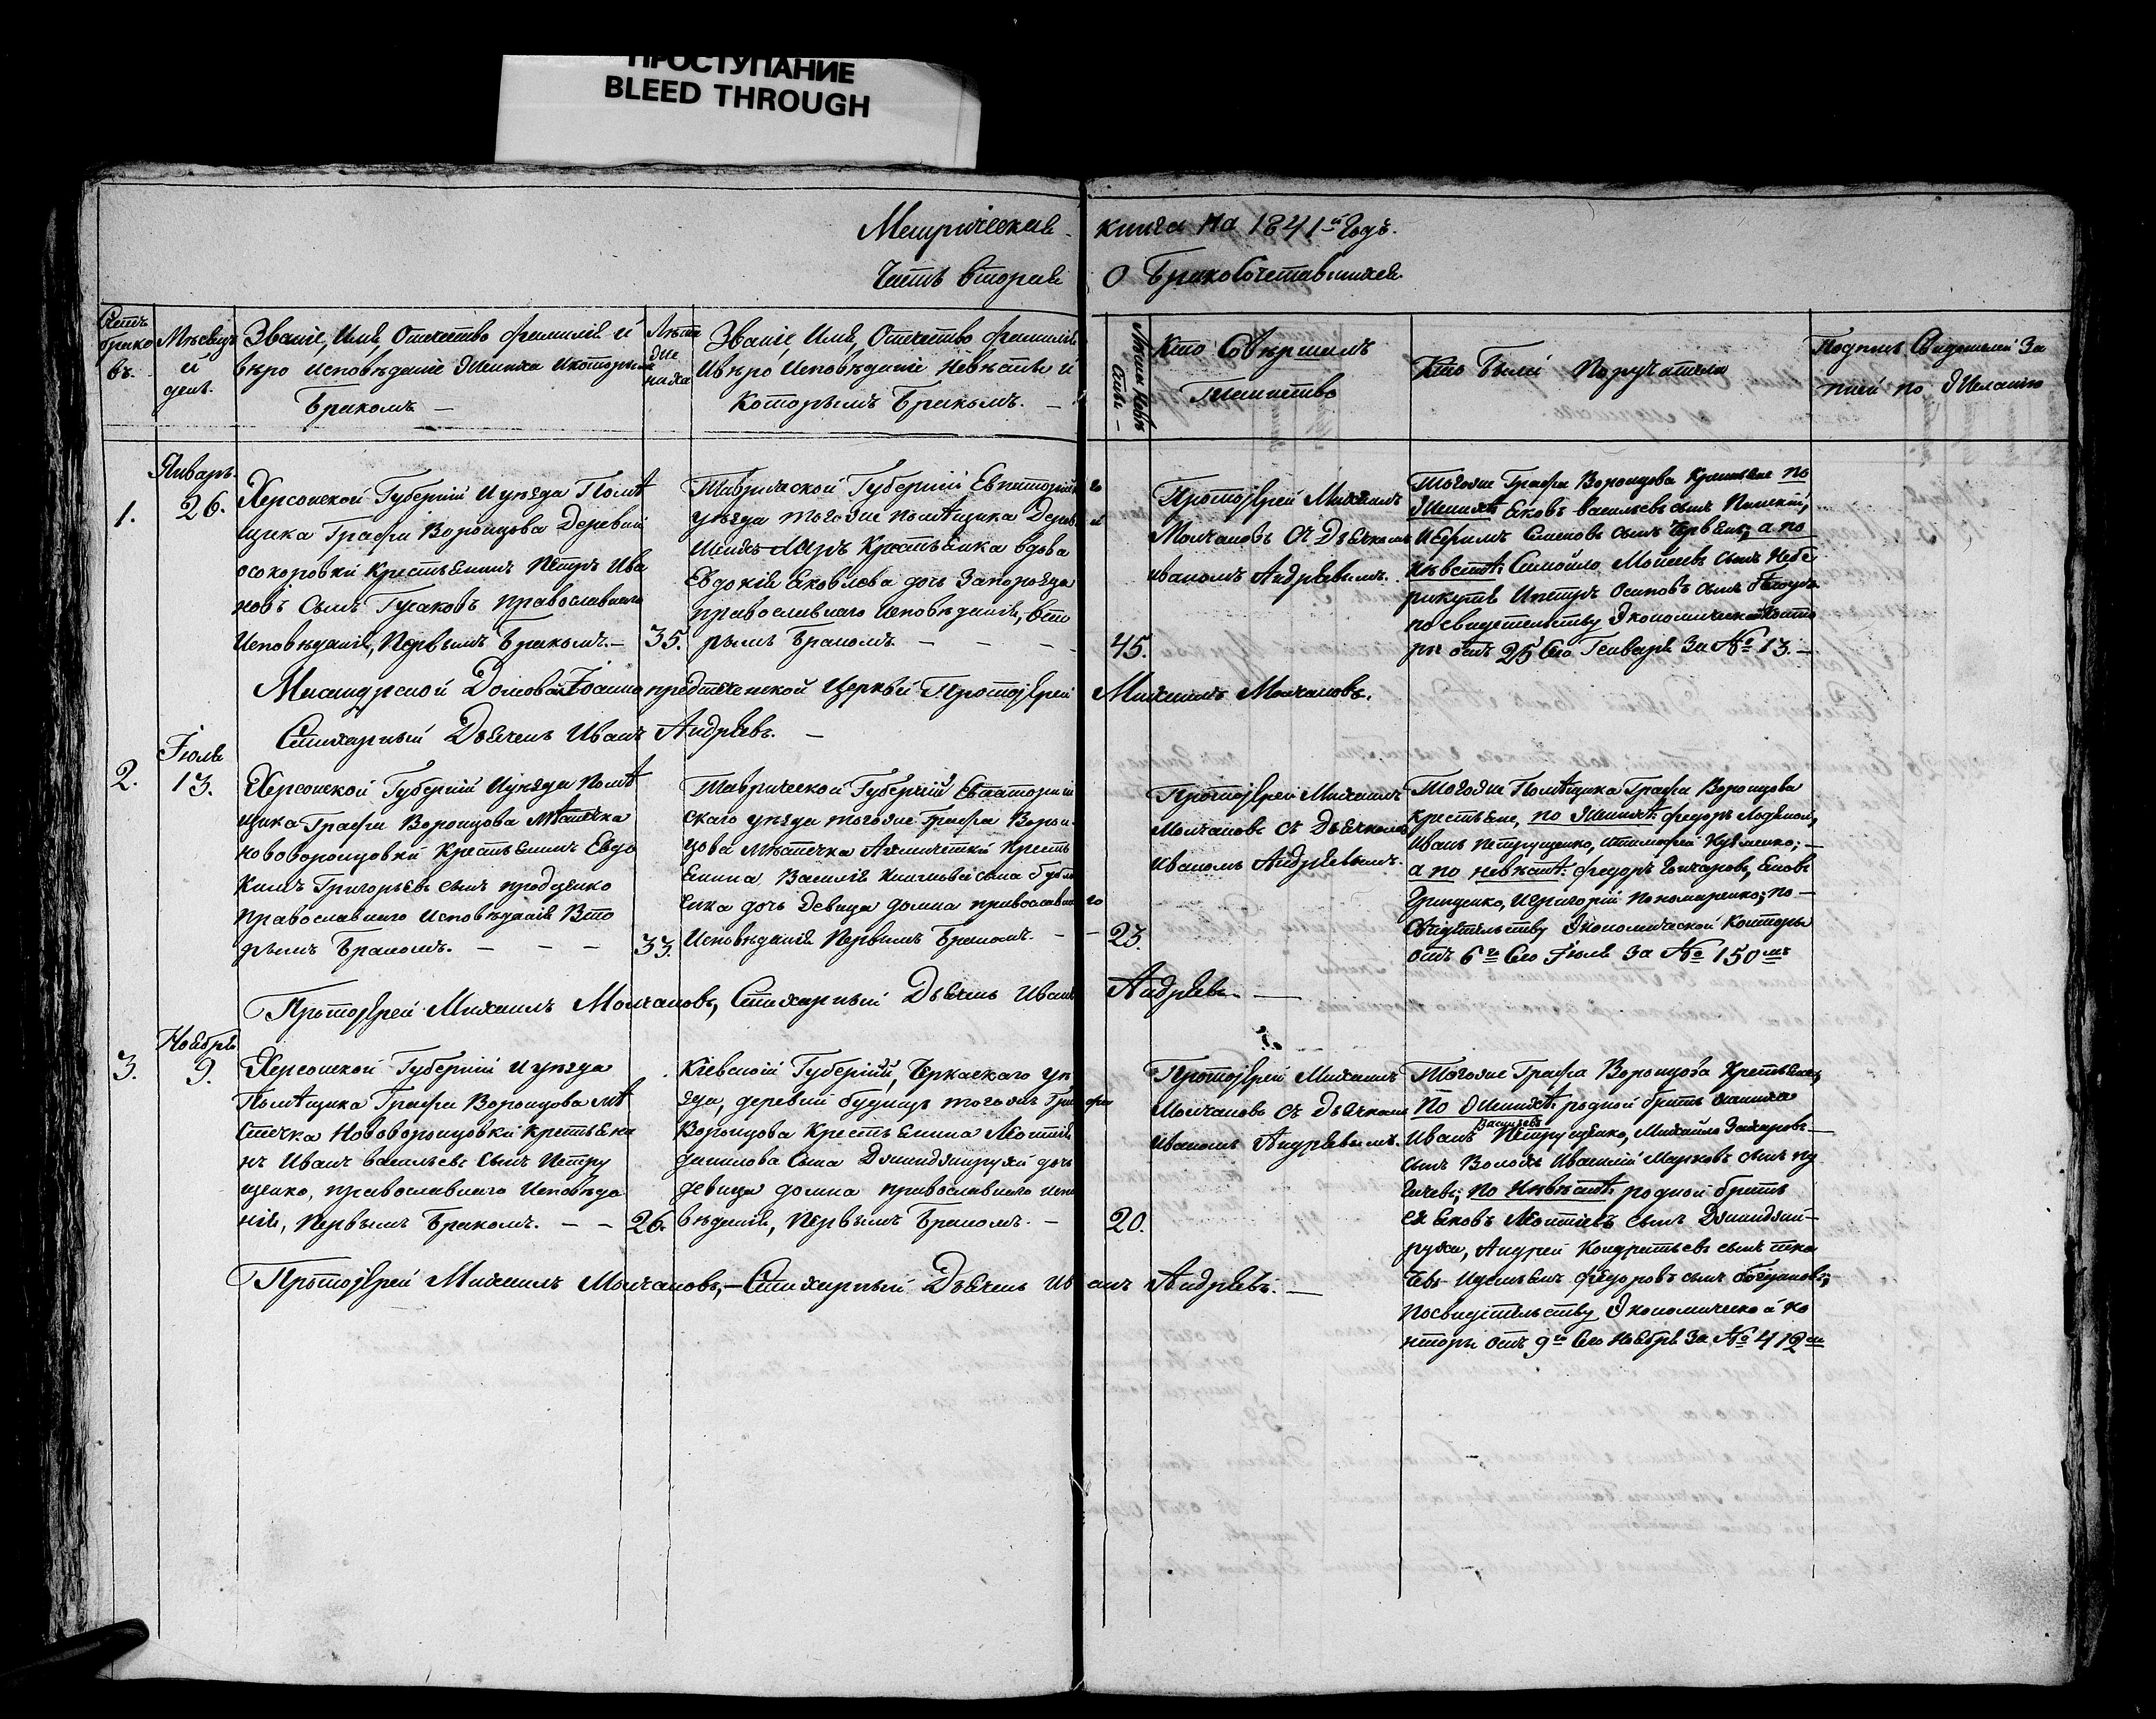 ПРОСТУПАНИЕ
BLEED THROUGH
Метрическая книга на 1841й Годъ.
Часть вторая О Бракосочетавшихся.
Счетъ
брако
въ.
Мѣсяцъ
и
день.
Званіе, Имя, Отечество фамилія и
вѣро Исповѣданіе Жениха и которымъ
Бракомъ —
Лѣта
же
ниха
Званіе, Имя, Отечество фамилія
И вѣро Исповѣданіе Невѣсты и
Которымъ Бракомъ. —
Лѣта невѣ
сты —
Кто Совершилъ
Таинство
Кто были Поручатели
Подпись Свидетелей За
писи по Желанію
1.
Январь.
26.
Херсонской Губерніи и уѣзда Помѣ
щика Графа Воронцова Деревни
осокоровки Крестьянинъ Петръ Ива
новъ Сынъ Гусаковъ православнаго
Исповѣданія, Первымъ Бракомъ. —
35.
Таврической Губерніи Евпаторійскаго
уѣзда тогоже помѣщика Деревни
Крестьянка вдова
Евдокія Яковлева дочь
православнаго Исповѣданія, Вто
рымъ Бракомъ. — — — —
45.
Протоіерей Михаилъ
Молчановъ Съ Дьячкомъ
иваномъ Андрѣевымъ.
Тогоже Графа Воронцова Крестьяне по
Женихѣ Яковъ васильевъ сынъ
Иефимъ Семеновъ сынъ а по
невѣстѣ Самойло Мойсеевъ Сынъ
Ипетръ Осиповъ сынъ
по свидетельству Экономической Конто
ры отъ 25 Сего Генваря За № 13. —
Масандрской Домовой Іоанно предтеченской Церкви Протоіерей Михаилъ Молчановъ.
Стихарный Дьячекъ Иванъ Андрѣевъ. —
2.
Іюля
13.
Херсонской Губерніи И уѣзда Помѣ
щика Графа Воронцова Мѣстечка
нововоронцовки Крестьянинъ Евдо
кимъ Григорьевъ сынъ проценко
православнаго Исповѣданія Вто
рымъ Бракомъ. — — —
33.
Таврической Губерніи Евпаторій
скаго уѣзда тогоже Графа Ворон
цова Мѣстечка Ахмечетки Кресть
янина Василія сына
дочь Девица домна православнаго
Исповѣданія Первымъ Бракомъ. — —
23.
Протоіерей Михаилъ
Молчановъ съ Дьячкомъ
Иваномъ Андрѣевымъ.
Тогоже Помѣщика Графа Воронцова
крестьяне, по Женихѣ федоръ
Иванъ Петрущенко, итимофей —
а по невѣстѣ федоръ Гончаровъ, Яковъ
Гриценко, Игригорій пономаренко; по —
Свидетельству Экономической Конторы
отъ 6го Сего Іюля За № 150мъ
Протоіерей Михаилъ Молчановъ, Стихарный Дьячекъ Иванъ Андрѣевъ. —
3.
Ноября
9.
Херсонской Губерніи и уѣзда
Помѣщика Графа Воронцова мѣ
стечка Нововоронцовки крестьяни
нъ Иванъ васильевъ Сынъ Петру
щенко, православнаго Исповѣда
нія, Первымъ Бракомъ. — —
26.
Кіевской Губерніи, Черкаскаго уѣ
зда, деревни будищъ тогожъ Графа
Воронцова Крестьянина Леонтія
данилова Сына дочь
девица домна православнаго испо
вѣданія, Первымъ Бракомъ. —
20.
Протоіерей Михаилъ
Молчановъ съ дьячкомъ
иваномъ Андрѣевымъ.
Тогоже Графа Воронцова Крестьяне,
По Женихѣ родной братъ жениха
Иванъ Васильевъ Петрущенко, Михайло Захаровъ —
сынъ Ивасилій Марковъ сынъ
по Невѣстѣ родной братъ
ея Яковъ Леонтіевъ сынъ
Андрей Кондратьевъ сынъ тка
чевъ федоровъ сынъ
По свидетельству Экономической ко
нторы отъ 9го Сего Ноября За № 412м
Протоіерей Михаилъ Молчановъ, — Стихарный Дьячекъ Иванъ Андрѣевъ. —